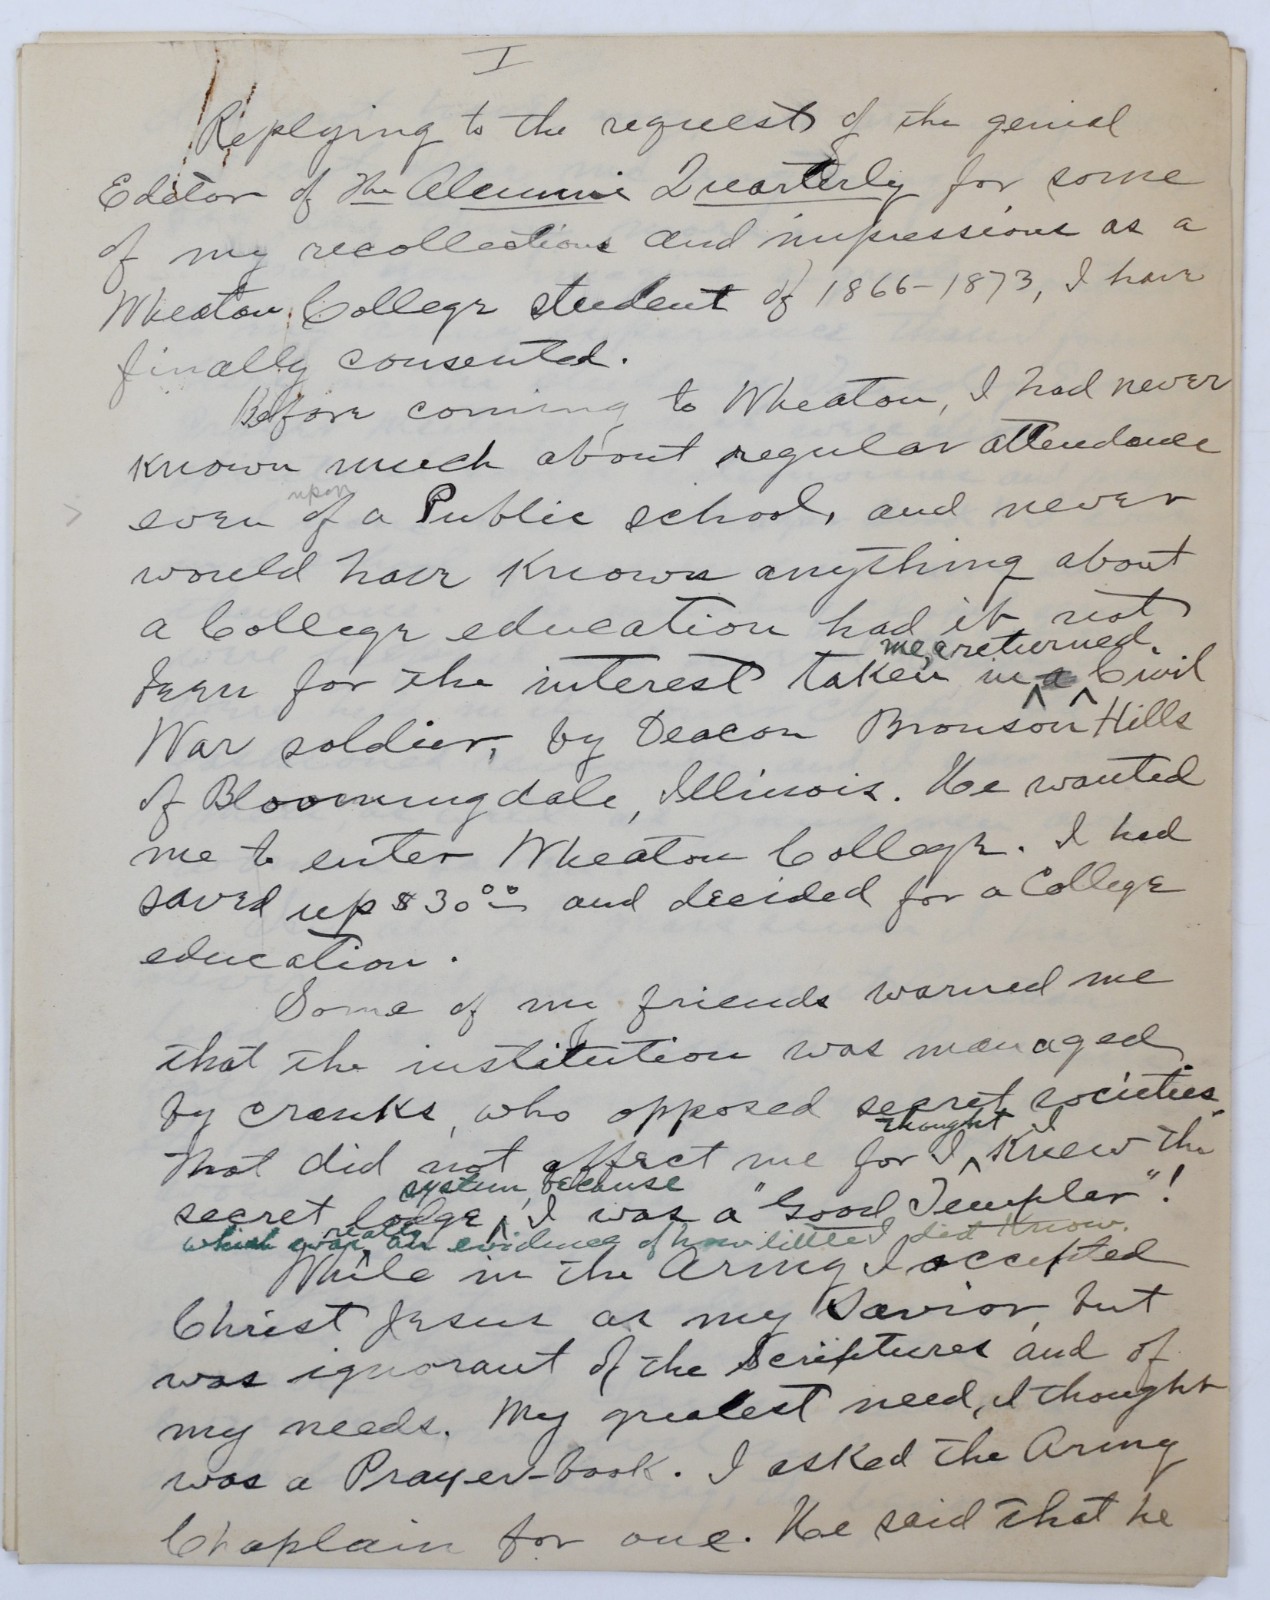 I
Replying to the request of the genial
Editor of The Alumni Quarterly for some
of my recollections and impressions as a
Wheaton College student of 1866-1873, I have
finally consented.
Before coming to Wheaton, I had never
known much about regular attendance
upon
even of a Public school, and never
would have known anything about
a College education had it not
me, a returned
been for the interest taken in a Civil
War soldier, by Deacon Bronson Hills
of Bloomingdale, Illinois. He wanted
me to enter Wheaton College. I had
saved up $30.00 and decided for a College
education.
Some of my friends warned me
that the institution was managed
by cranks, who opposed secret societies.
thought
That did not affect me for I knew the
system, because
secret lodge, I was a "Good Templar"!
really
which was an evidence of how little I did know.
While in the Army I accepted
Christ Jesus as my Savior, but
was ignorant of the Scriptures and of
my needs. My greatest need, I thought
was a Prayer-book. I asked the Army
Chaplain for one. He said that he